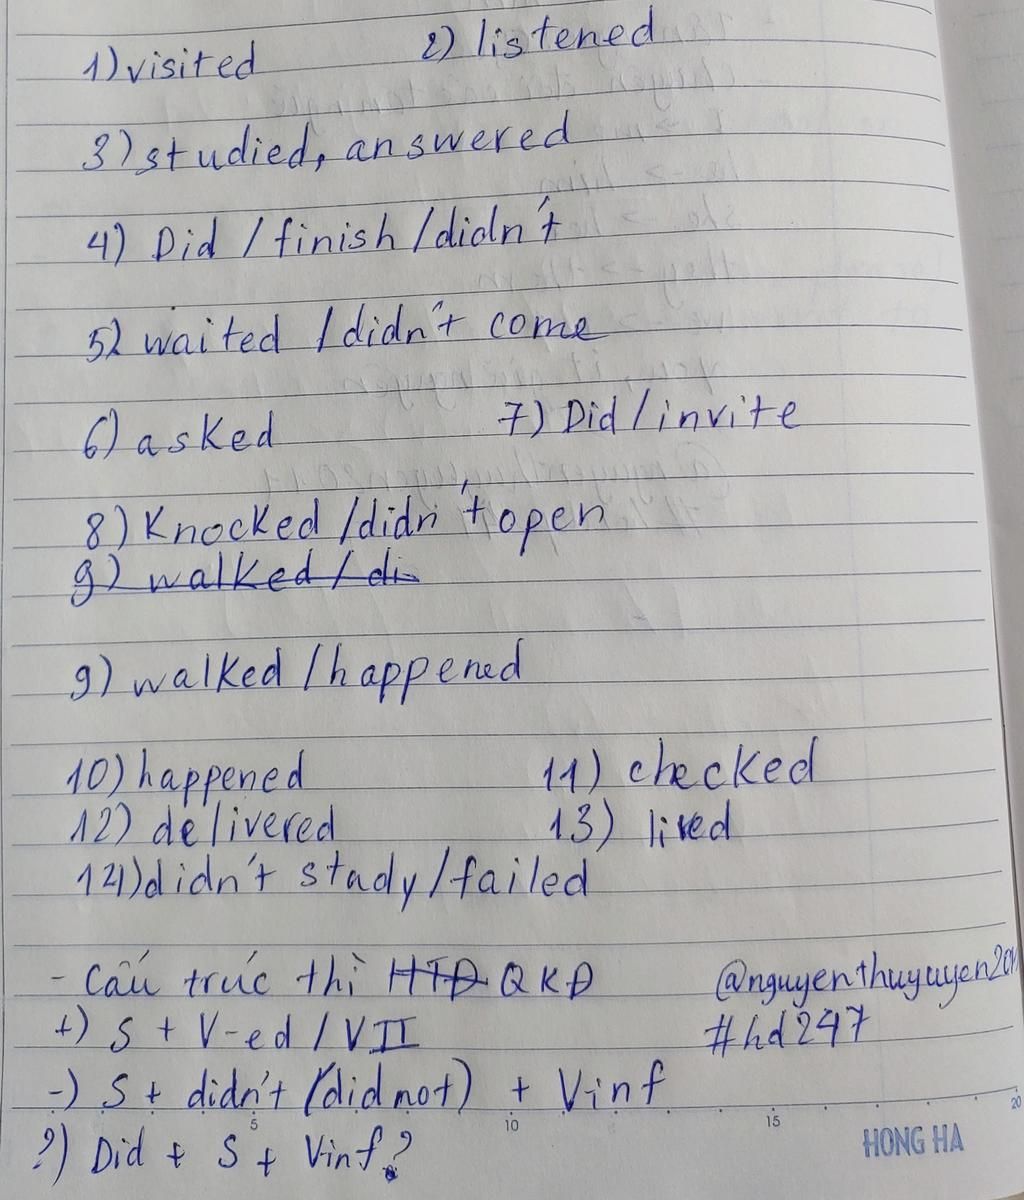 1) visited 2) listened
3) studied, answered
4) Did / finish / didn't
5) waited / didn't come
6) asked 7) Did / invite
8) Knocked / didn't open
9) walked / di
9) walked / happened
10) happened 11) checked
12) delivered 13) lived
14) didn't study / failed
- Cấu trúc thì HTĐ QKĐ @nguyenthuyuyen20
+) S + V-ed / VII #hd247
-) S + didn't (did not) + Vinf
?) Did + S + Vinf?
5 10 15 20
HONG HA